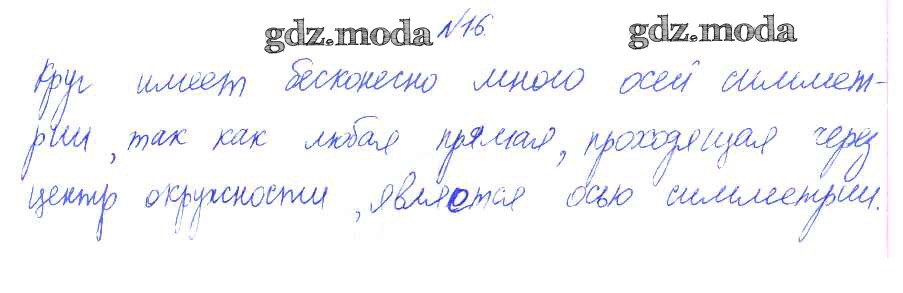 gdz.moda №16. gdz.moda
Круг имеет бесконечно много осей симмет-
рии, так как любая прямая, проходящая через
центр окружности, является осью симметрии.